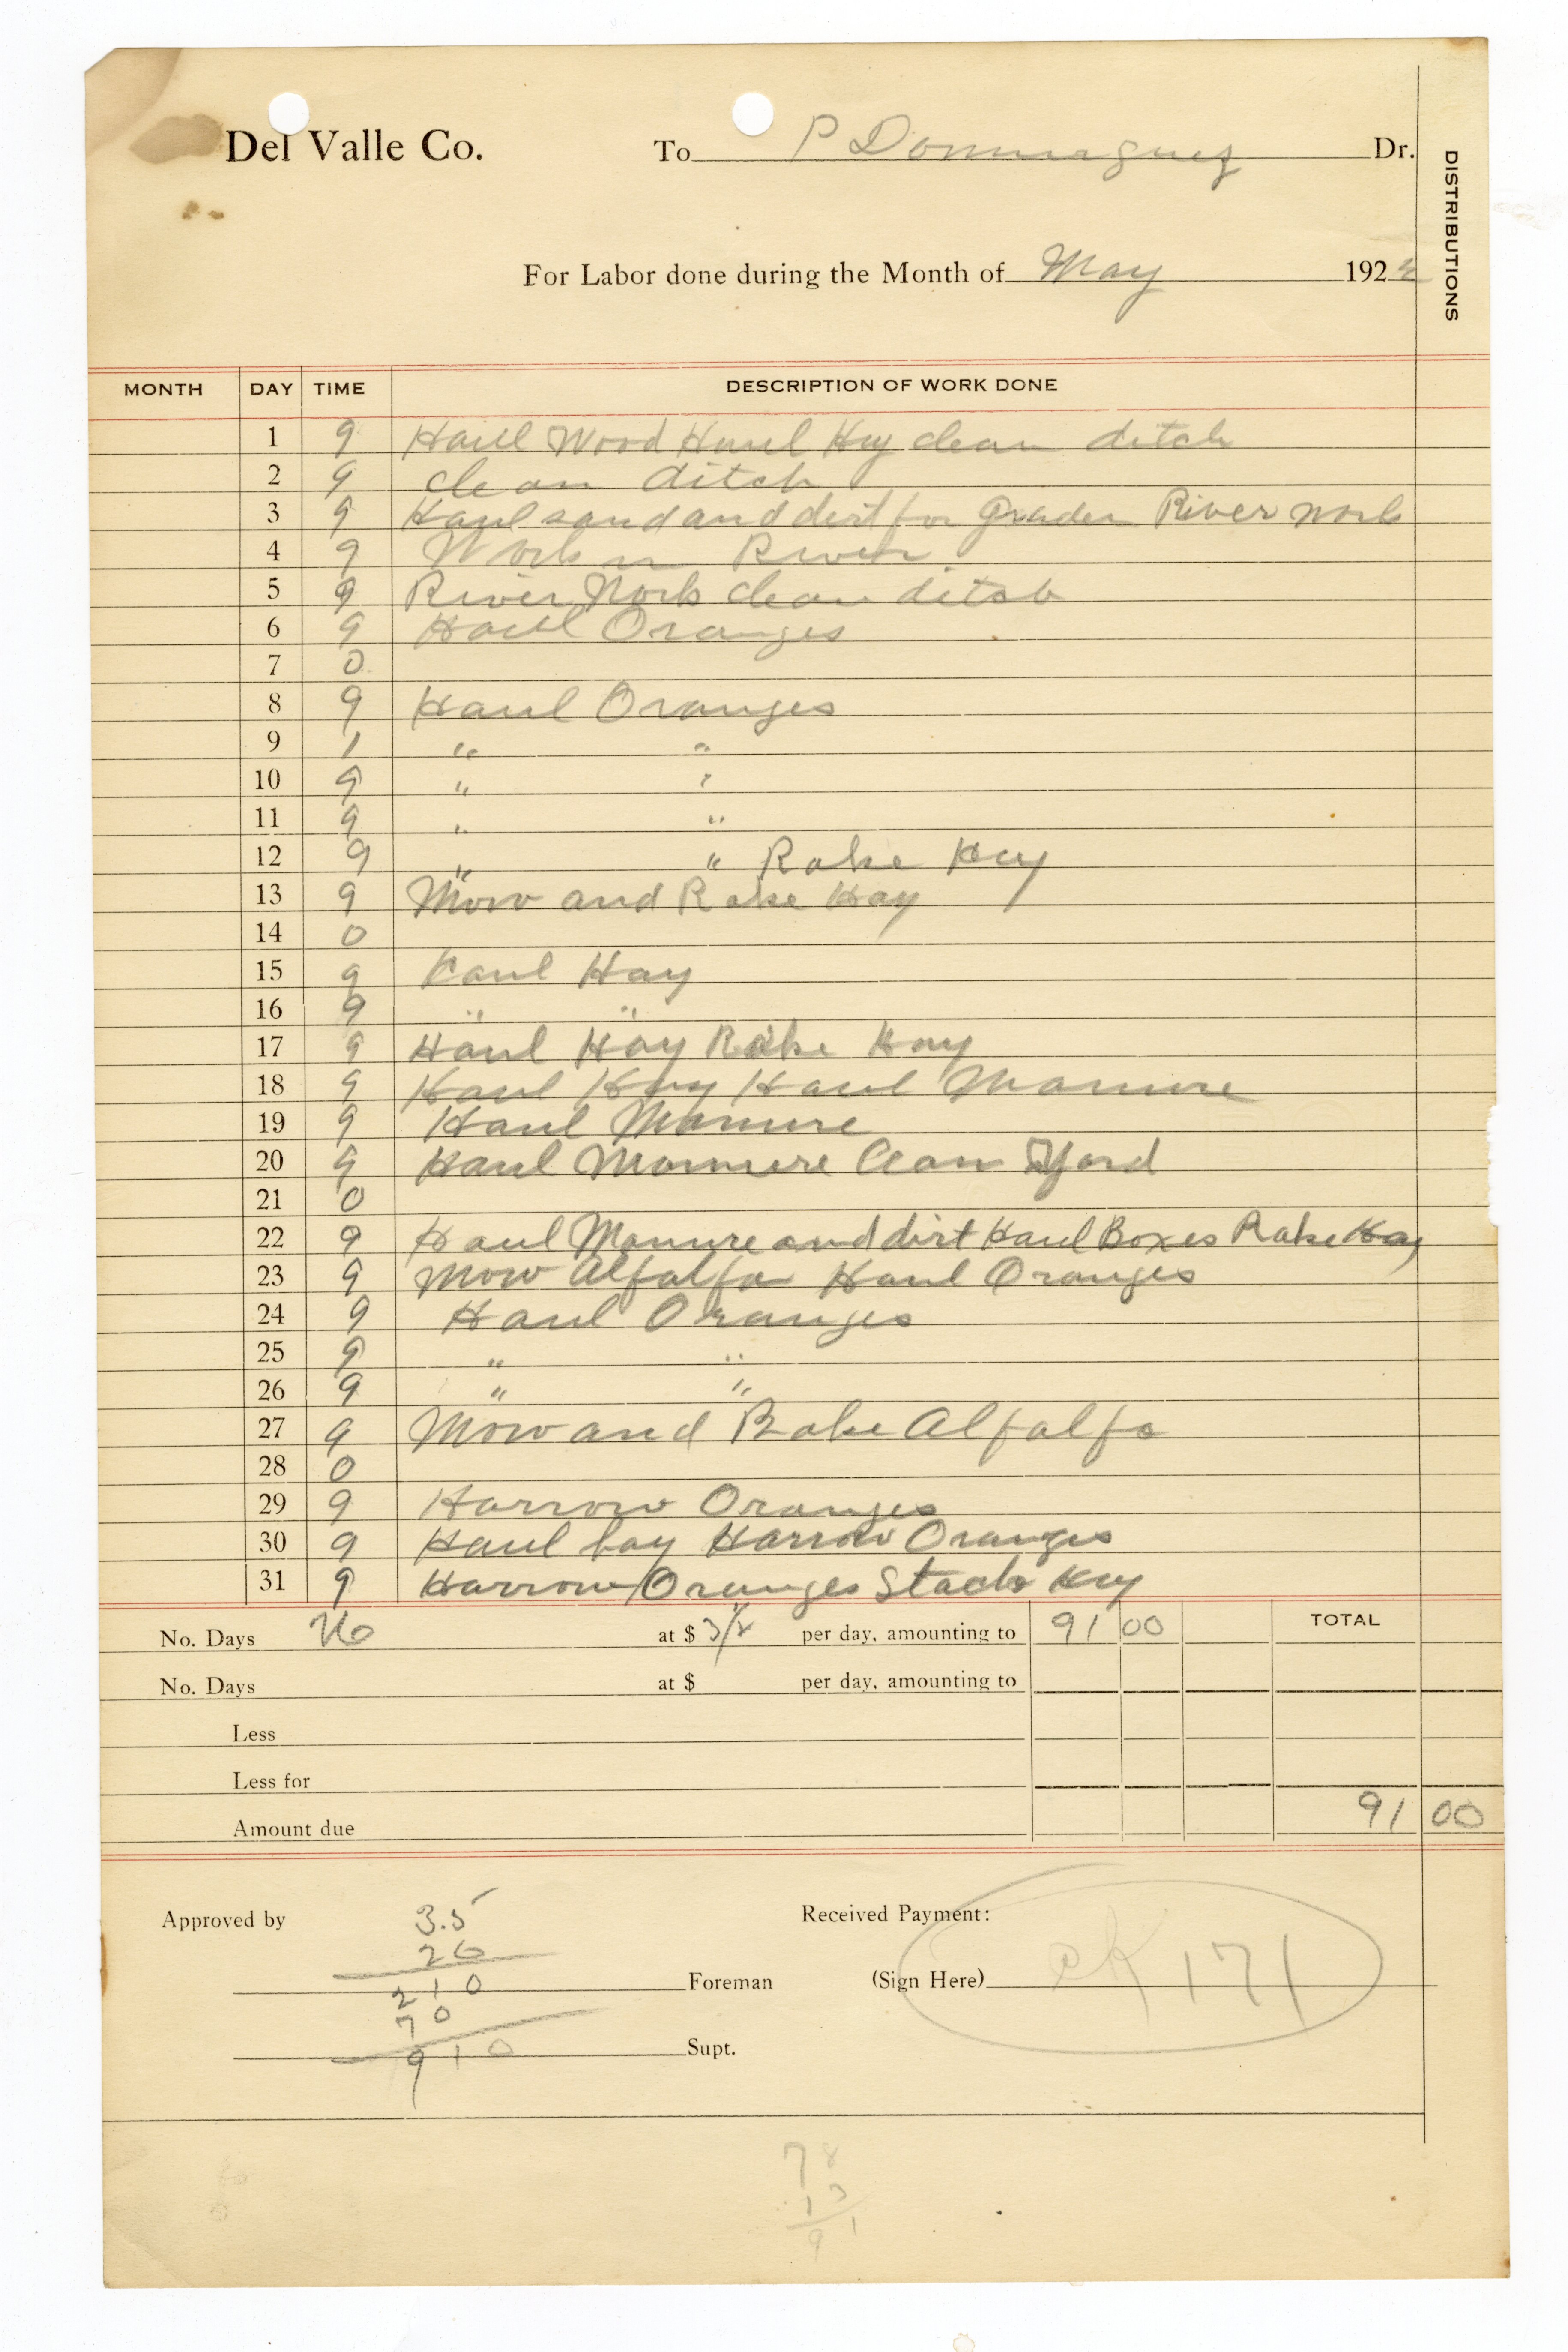 Del Valle Co. To P Dominaguez Dr.
DISTRIBUTIONS
For Labor done during the Month of May 192
MONTH DAY TIME DESCRIPTION OF WORK DONE
1 9 Haul Wood Haul Hay clean ditch
2 9 clean ditch
3 9 Haul sand and dirt for Grader River work
4 9 Work in River
5 9 River Work clean ditch
6 9 Haul Oranges
7 0
8 9 Haul Oranges
9 1 " "
10 9 " "
11 9 " "
12 9 " " Rake Hay
13 9 Mow and Rake Hay
14 0
15 9 Haul Hay
16 9 " "
17 9 Haul Hay Rake Hay
18 9 Haul Hay Haul Manure
19 9 Haul Manure
20 9 Haul Manure Clean Yard
21 0
22 9 Haul Manure and dirt Haul Boxes Rake Hay
23 9 Mow Alfalfa Haul Oranges
24 9 Haul Oranges
25 9 " "
26 9 " "
27 9 Mow and Rake Alfalfa
28 0
29 9 Harrow Oranges
30 9 Haul hay Harrow Oranges
31 9 Harrow Oranges Stack Hay
No. Days 26 at $ 3 1/2 per day, amounting to 91 00 TOTAL
No. Days at $ per day, amounting to
Less
Less for
Amount due 91 00
Approved by 3.5 Received Payment:
26
210 Foreman (Sign Here) CK 171
70
910 Supt.
78
13
91